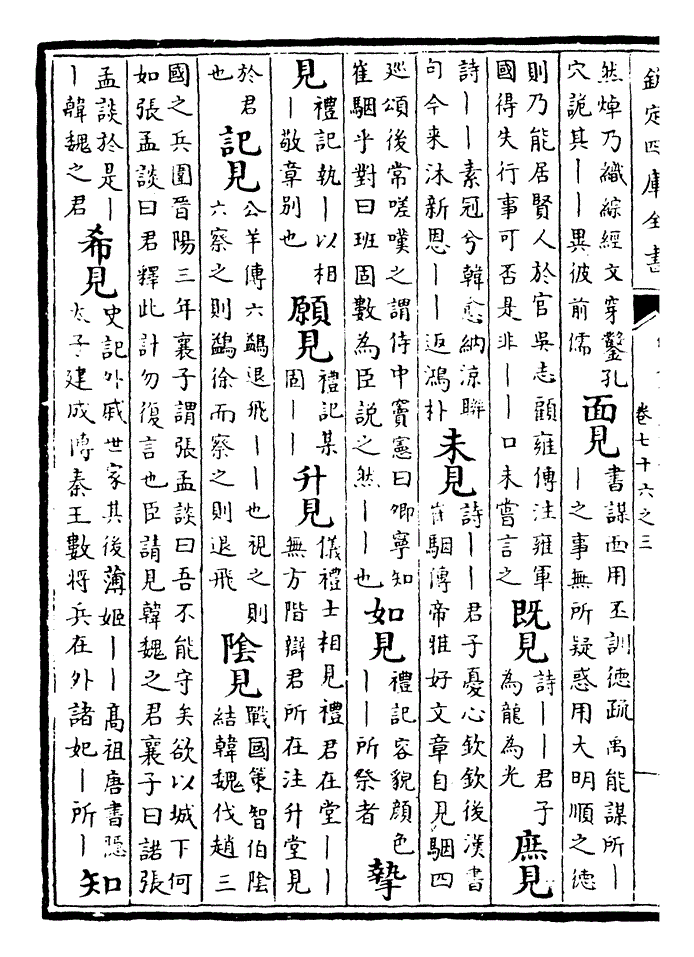 欽定四庫全書
卷七十六之三
然焯乃織綜經文穿鑿孔
穴詭其丨丨異彼前儒
面見
書謀面用丕訓德疏禹能謀所丨
丨之事無所疑惑用大明順之德
則乃能居賢人於官吳志顧雍傳注雍軍
國得失行事可否是非丨丨口未嘗言之
既見
詩丨丨君子
為龍為光
庶見
詩丨丨素冠兮韓愈納涼聯
句今来沐新恩丨丨返鴻朴
未見
詩丨丨君子憂心欽欽後漢書
崔駰傳帝雅好文章自見駰四
廵頌後常嗟嘆之謂侍中竇憲曰卿寧知
崔駰乎對曰班固數為臣說之然丨丨也
如見
禮記容貌顔色
丨丨所祭者
摯
見
禮記執丨以相
丨敬章别也
願見
禮記某
固丨丨
升見
儀禮士相見禮君在堂丨丨
無方階辯君所在注升堂見
於君
也
記見
公羊傳六鷁退飛丨丨也視之則
六察之則鷁徐而察之則退飛
陰見
戰國策智伯陰
結韓魏伐趙三
國之兵圍晉陽三年襄子謂張孟談曰吾不能守矣欲以城下何
如張孟談曰君釋此計勿復言也臣請見韓魏之君襄子曰諾張
孟談於是丨
丨韓魏之君
希見
史記外戚世家其後薄姬丨丨高祖唐書隱
太子建成傳秦王數將兵在外諸妃丨所丨
知